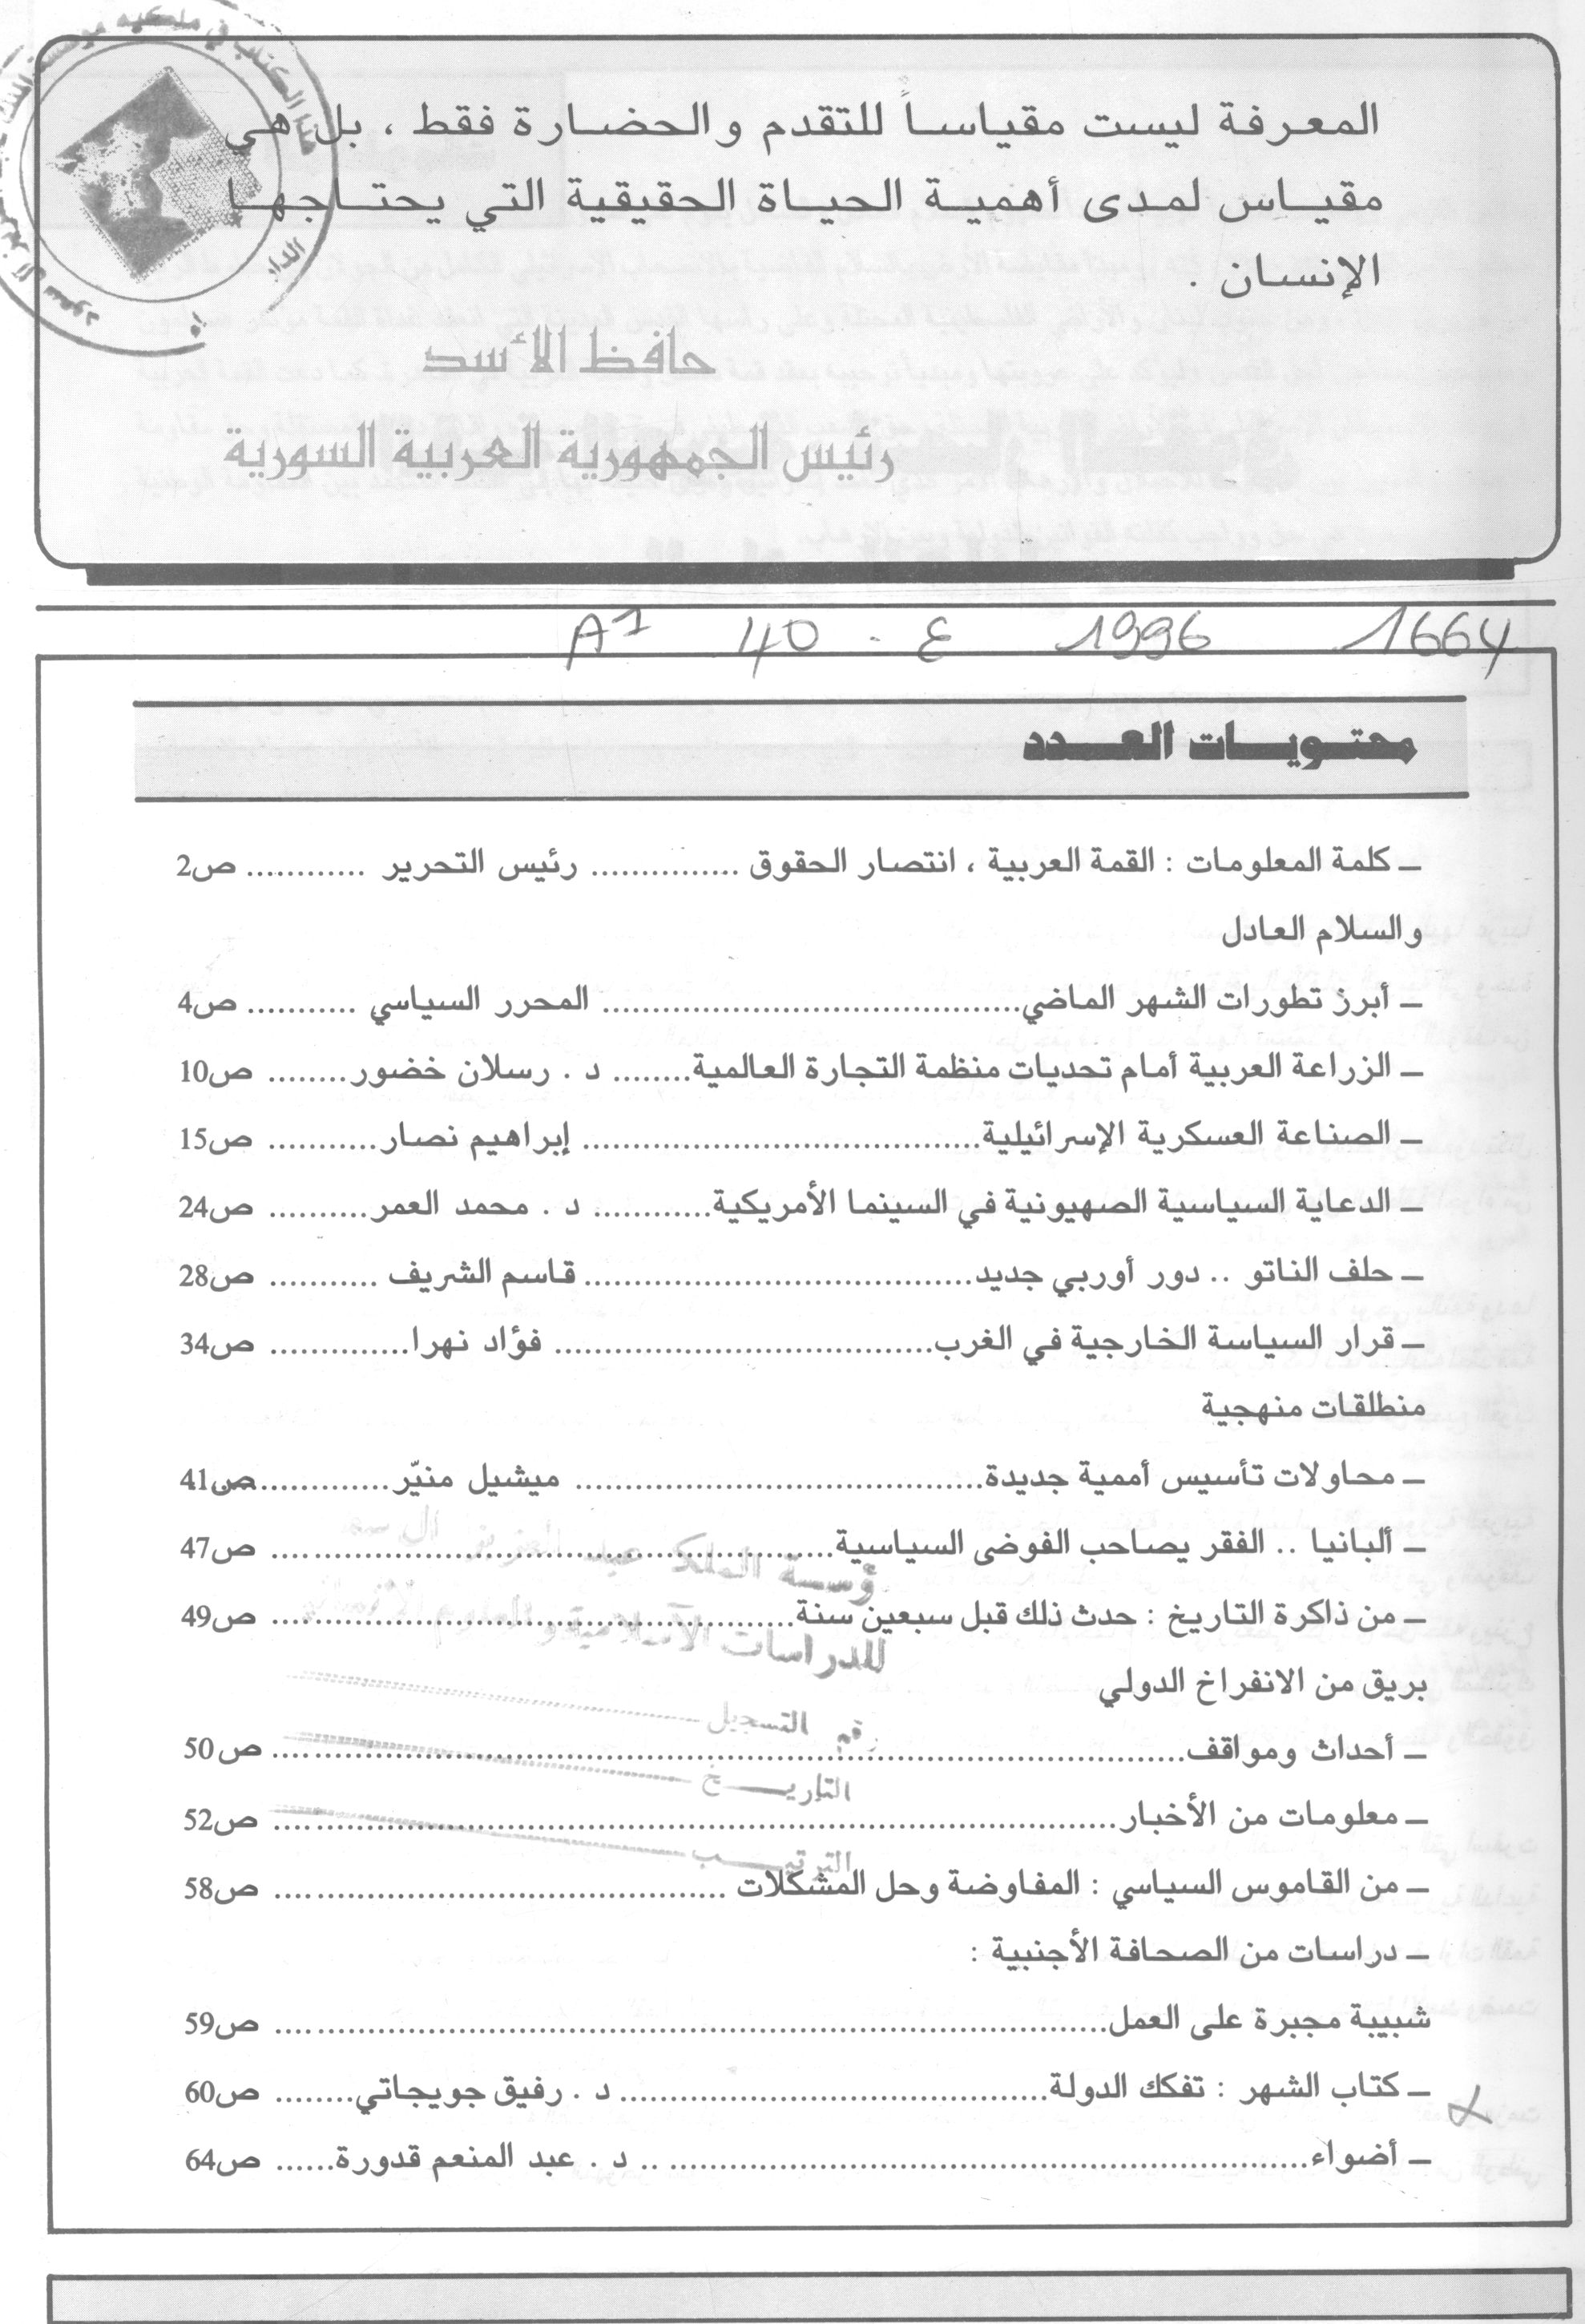 المعرفة ليست مقياساً للتقدم والحضارة فقط ، بل هي
مقياس لمدى أهمية الحياة الحقيقية التي يحتاجها
الإنسان .
حافظ الأسد
رئيس الجمهورية العربية السورية
A1 40 - ع 1996 1664
محتويات العدد
ـ كلمة المعلومات : القمة العربية ، انتصار الحقوق .............. رئيس التحرير ............ ص2
والسلام العادل
ـ أبرز تطورات الشهر الماضي....................................... المحرر السياسي ........... ص4
ـ الزراعة العربية أمام تحديات منظمة التجارة العالمية........ د . رسلان خضور........ ص10
ـ الصناعة العسكرية الإسرائيلية...................................... إبراهيم نصار........... ص15
ـ الدعاية السياسية الصهيونية في السينما الأمريكية............ د . محمد العمر.......... ص24
ـ حلف الناتو .. دور أوربي جديد..................................... قاسم الشريف ........... ص28
ـ قرار السياسة الخارجية في الغرب.................................... فؤاد نهرا.............. ص34
منطلقات منهجية
ـ محاولات تأسيس أممية جديدة....................................... ميشيل منيّر.............ص41
ـ ألبانيا .. الفقر يصاحب الفوضى السياسية..................................................... ص47
ـ من ذاكرة التاريخ : حدث ذلك قبل سبعين سنة................................................. ص49
بريق من الانفراخ الدولي
ـ أحداث ومواقف...................................................................................... ص50
ـ معلومات من الأخبار................................................................................ ص52
ـ من القاموس السياسي : المفاوضة وحل المشكلات .......................................... ص58
ـ دراسات من الصحافة الأجنبية :
شبيبة مجبرة على العمل.............................................................................. ص59
ـ كتاب الشهر : تفكك الدولة........................................ د . رفيق جويجاتي........ ص60
ـ أضواء............................................................ .. د . عبد المنعم قدورة...... ص64
للدراسات الاسلامية
التسجيل
التاريخ
الترتيب